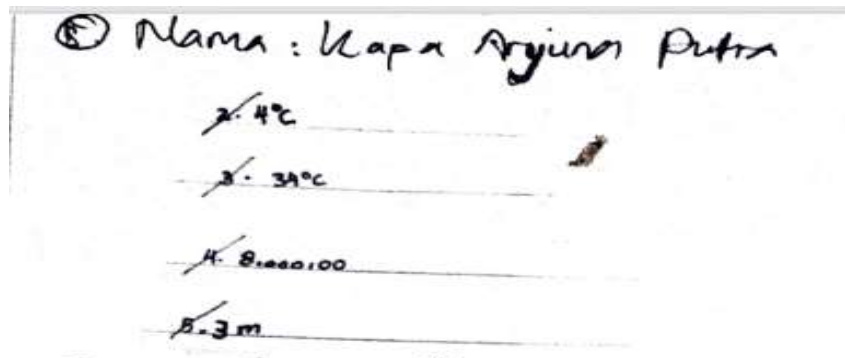 Nama : Kapa Arjuna Putra
2. 4°C
3. 34°C
4. 8.000,00
5. 3 m